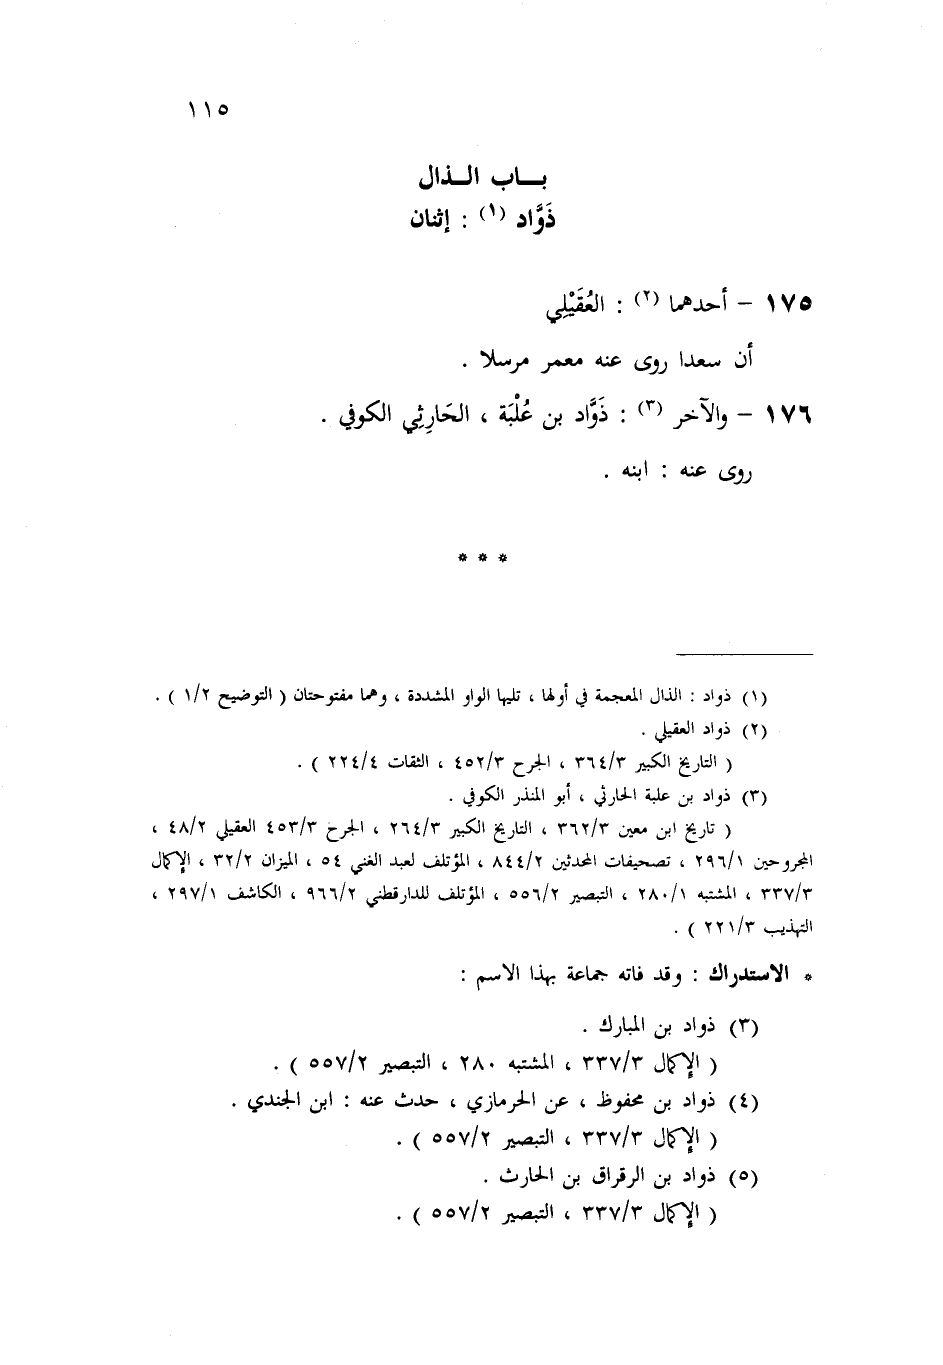 ١١٥
بـــاب الــذال
ذَوَّاد (١) : إثنان
١٧٥ – أحدهما (٢) : العُقَيْلِي
أن سعدا روى عنه معمر مرسلا .
١٧٦ – والآخر (٣) : ذَوَّاد بن عُلْبَة ، الحَارِثِي الكوفي .
روى عنه : ابنه .
* * *
(١) ذواد : الذال المعجمة في أولها ، تليها الواو المشددة ، وهما مفتوحتان ( التوضيح ١/٢ ) .
(٢) ذواد العقيلي .
( التاريخ الكبير ٣٦٤/٣ ، الجرح ٤٥٢/٣ ، الثقات ٢٢٤/٤ ) .
(٣) ذواد بن علبة الحارثي ، أبو المنذر الكوفي .
( تاريخ ابن معين ٣٦٢/٣ ، التاريخ الكبير ٢٦٤/٣ ، الجرح ٤٥٣/٣ العقيلي ٤٨/٢ ،
المجروحين ٢٩٦/١ ، تصحيفات المحدثين ٨٤٤/٢ ، المؤتلف لعبد الغني ٥٤ ، الميزان ٣٢/٢ ، الإكمال
٣٣٧/٣ ، المشتبه ٢٨٠/١ ، التبصير ٥٥٦/٢ ، المؤتلف للدارقطني ٩٦٦/٢ ، الكاشف ٢٩٧/١ ،
التهذيب ٢٢١/٣ ) .
* الاستدراك : وقد فاته جماعة بهذا الاسم :
(٣) ذواد بن المبارك .
( الإكمال ٣٣٧/٣ ، المشتبه ٢٨٠ ، التبصير ٥٥٧/٢ ) .
(٤) ذواد بن محفوظ ، عن الحرمازي ، حدث عنه : ابن الجندي .
( الإكمال ٣٣٧/٣ ، التبصير ٥٥٧/٢ ) .
(٥) ذواد بن الرقراق بن الحارث .
( الإكمال ٣٣٧/٣ ، التبصير ٥٥٧/٢ ) .